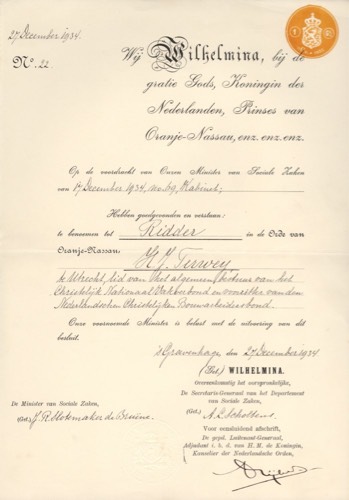 27 December 1934.
Nº. 22.
Wij Wilhelmina, bij de
gratie Gods, Koningin der
Nederlanden, Prinses van
Oranje-Nassau, enz. enz. enz.
Op de voordracht van Onzen Minister van Sociale Zaken
van 17 December 1934, no. 69, Kabinet;
Hebben goedgevonden en verstaan:
te benoemen tot Ridder in de Orde van
Oranje-Nassau:
H. J. Terwey
te Utrecht, lid van het algemeen bestuur van het
Christelijk Nationaal Vakverbond en voorzitter van den
Nederlandschen Christelijken Bouwarbeidersbond.
Onze voornoemde Minister is belast met de uitvoering van dit
besluit.
's Gravenhage, den 27 December 1934
(Get) WILHELMINA.
Overeenkomstig het oorspronkelijke,
De Secretaris-Generaal van het Departement
van Sociale Zaken,
(Get) A. L. Scholtens
De Minister van Sociale Zaken,
(Get) J. R. Slotemaker de Bruïne.
Voor eensluidend afschrift,
De gepd. Luitenant-Generaal,
Adjudant i. b. d. van H. M. de Koningin,
Kanselier der Nederlandsche Orden,